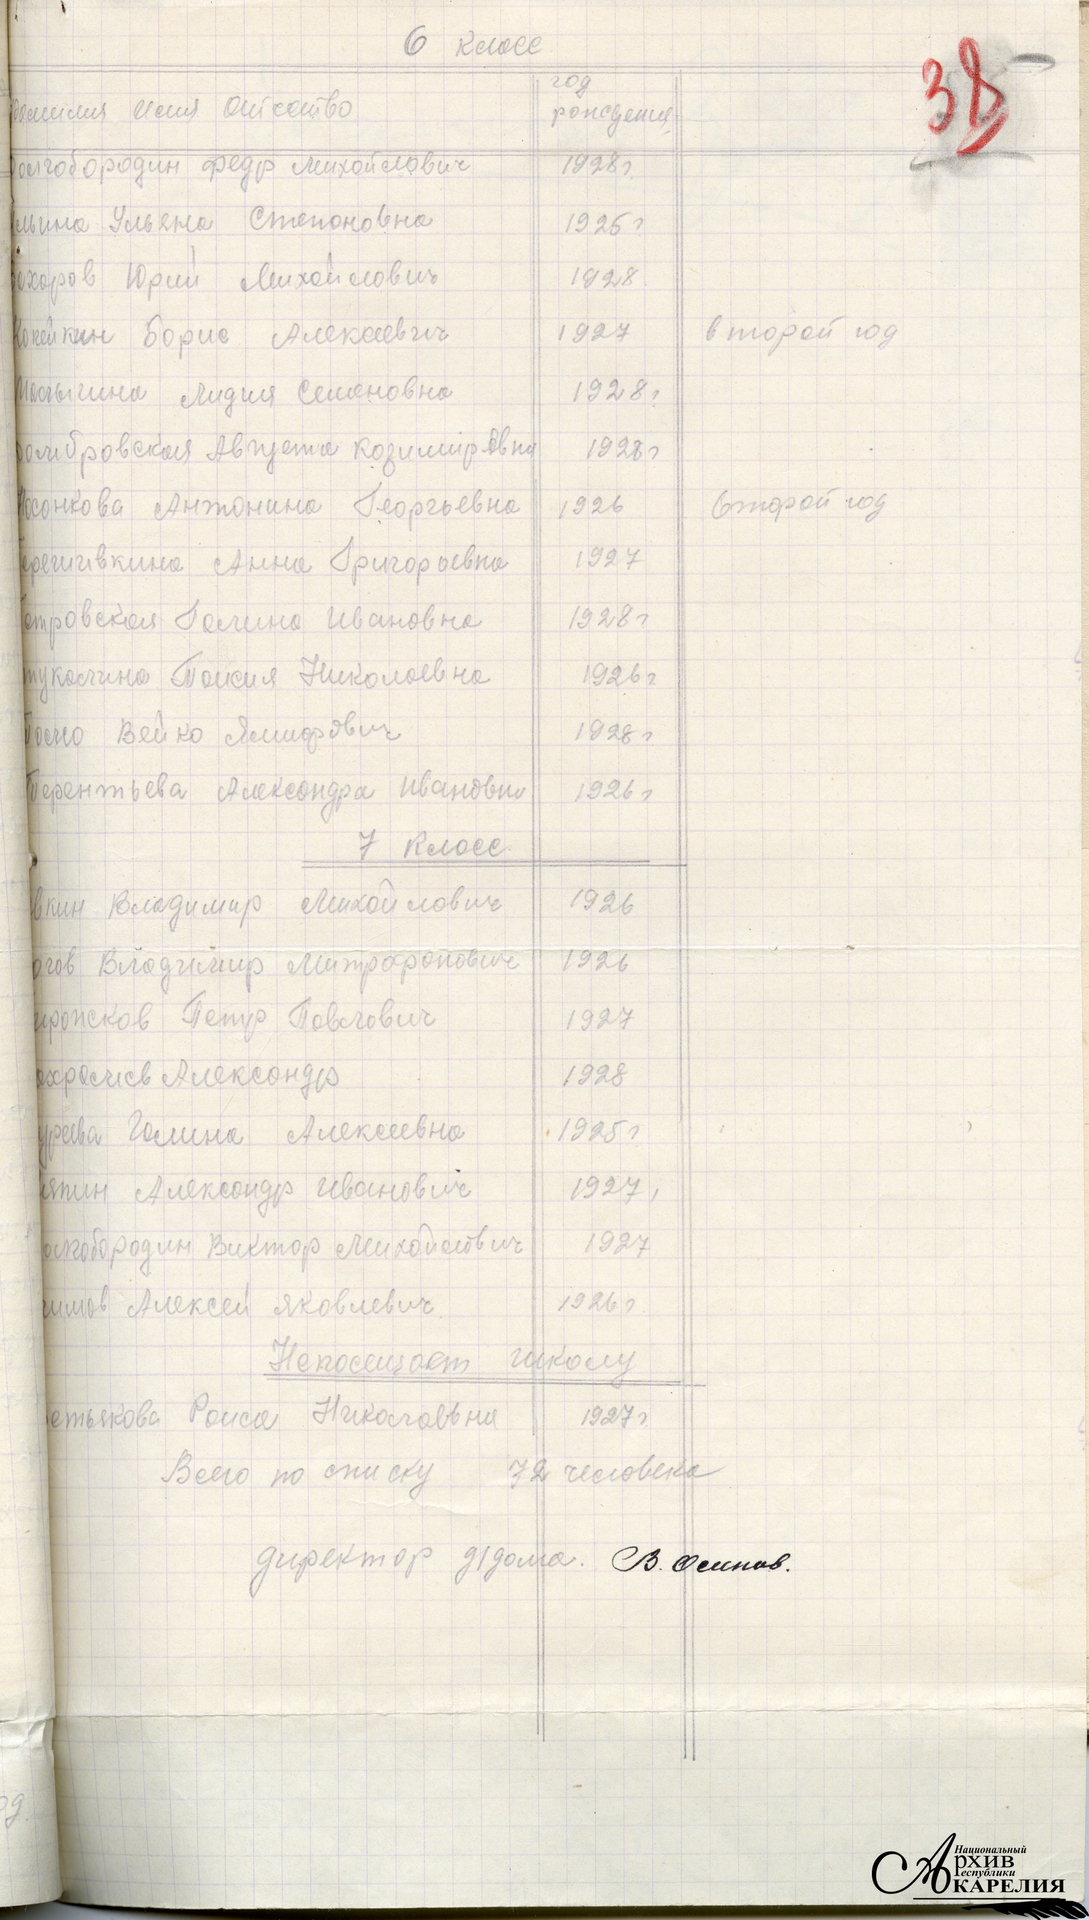 6 класс
38
год
фамилия имя отчество рождения
Долгобородин Федр Михайлович 1928г
льина Ульяна Степановна 1926г
охоров Юрий Михайлович 1928
Копейкин Борис Алексеевич 1927 второй год
Малыгина Лидия Семеновна 1928г
омбровская Августа Козимировна 1928г
Носонкова Антонина Георгьевна 1926 второй год
Анна Григорьевна 1927
отровская Галина Ивановна 1928г
тукалина Таисия Николаевна 1926г
Вейко 1928г
Терентьева Александра Ивановна 1926г
7 класс
вкин Владимир Михайлович 1926
огов Владимир Митрофанович 1926
Петр Павлович 1927
ахромеев Александр 1928
уреева Галина Алексеевна 1925г
япин Александр Иванович 1927
олгобородин Виктор Михайлович 1927
имов Алексей Яковлевич 1926г
Непосещает школу
етьякова Раиса Николаевна 1927г
Всего по списку 72 человека
директор д/дома. В. Осипов.
од
Национальный
Архив
Республики
Карелия